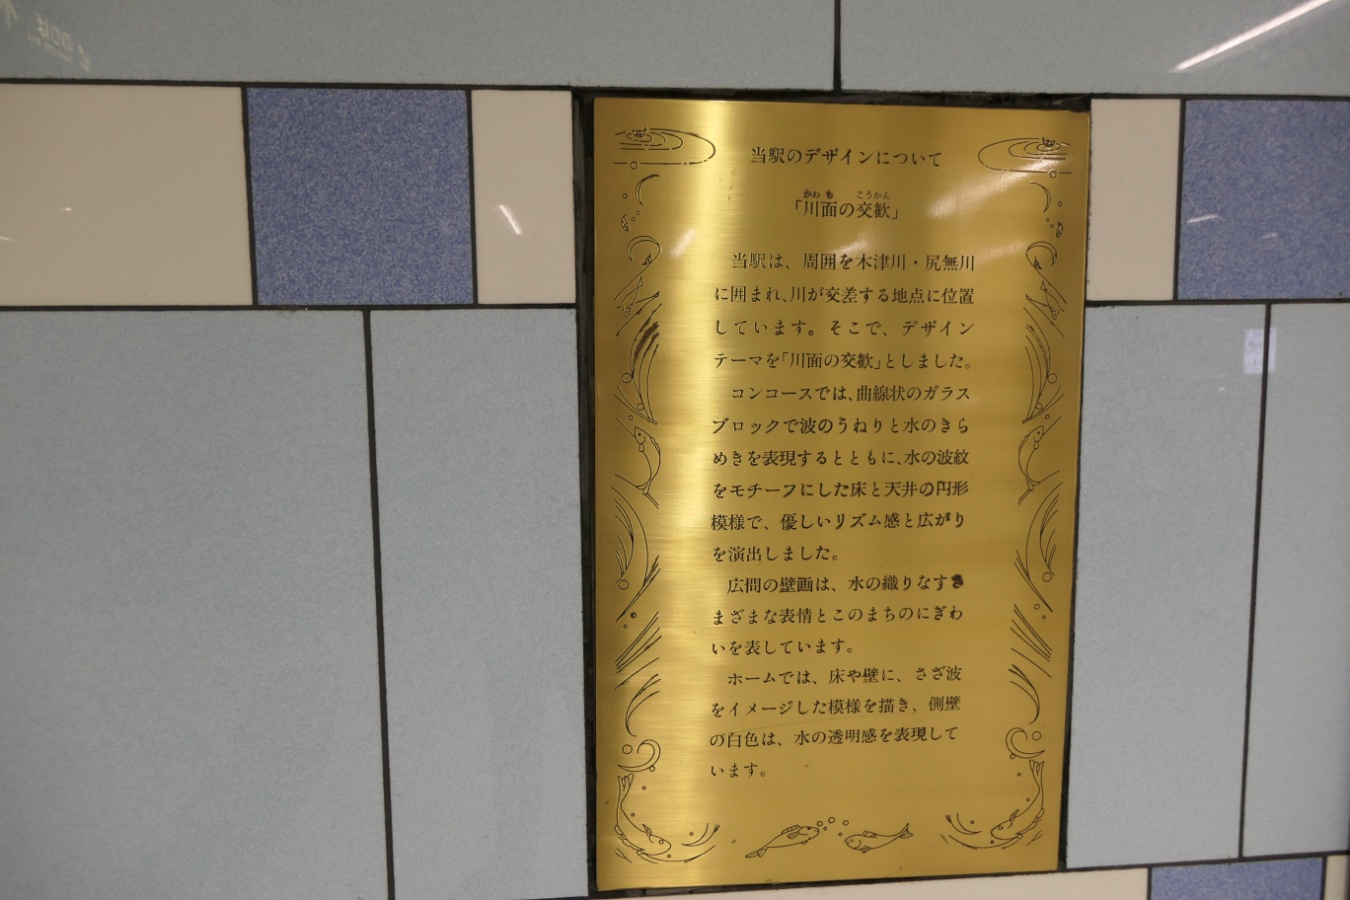 当駅のデザインについて
「川面の交歓」
当駅は、周囲を木津川・尻無川
に囲まれ、川が交差する地点に位置
しています。そこで、デザイン
テーマを「川面の交歓」としました。
コンコースでは、曲線状のガラス
ブロックで波のうねりと水のきら
めきを表現するとともに、水の波紋
をモチーフにした床と天井の円形
模様で、優しいリズム感と広がり
を演出しました。
広間の壁画は、水の織りなすさ
まざまな表情とこのまちのにぎわ
いを表しています。
ホームでは、床や壁に、さざ波
をイメージした模様を描き、側壁
の白色は、水の透明感を表現して
います。